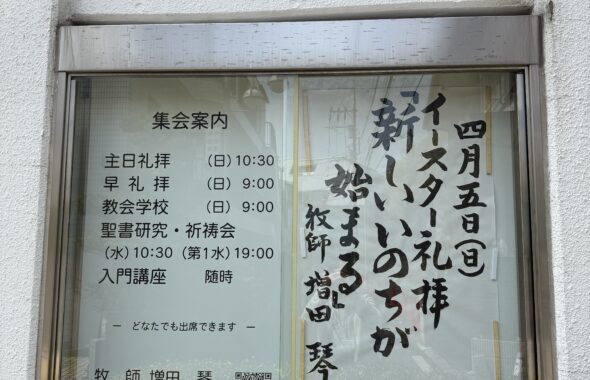 集会案内
主日礼拝 (日) 10:30
早礼拝 (日) 9:00
教会学校 (日) 9:00
聖書研究・祈祷会
(水) 10:30 (第1水) 19:00
入門講座 随時
― どなたでも出席できます ―
牧師 増田 琴
四月五日(日)
イースター礼拝
「新しいいのちが
始まる」
牧師 増田 琴